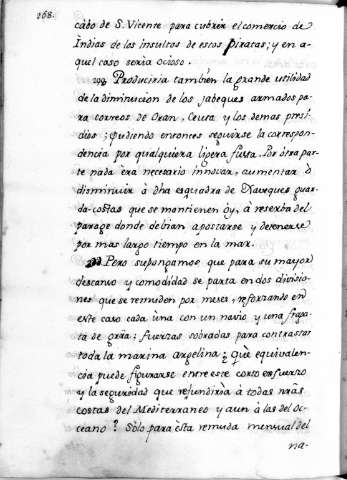 268.
cabo de S. Vicente para cubrir el comercio de
Indias de los insultos de estos piratas; y en a-
quel caso seria ocioso.
Produciria tambien la grande utilidad
de la diminucion de los jabeques armados pa-
ra correos de Oran, Ceuta y los demas presi-
dios; pudiendo entonces seguirse la correspon-
dencia por qualquiera ligera fusta. Por otra par-
te nada era necesario innovar, aumentar ó
disminuir á dha esquadra de Xaveques guar-
da-costas que se mantienen oy, á reserba del
parage donde debian apostarse y detenerse
por mas largo tiempo en la mar.
Pero supongamos que para su mayor
descanso y comodidad se parta en dos divisio-
nes que se remuden por meses, reforzando en
este caso cada una con un navio y una fraga-
ta de grra; fuerzas sobradas para contrastar
toda la marina argelina ¿ què equivalen-
cia puede figurarse entre este corto esfuerzo
y la seguridad que refundiria à todas nras
costas del Mediterraneo y aun à las del Oc-
ceano? Sòlo para èsta remuda mensual del
na-